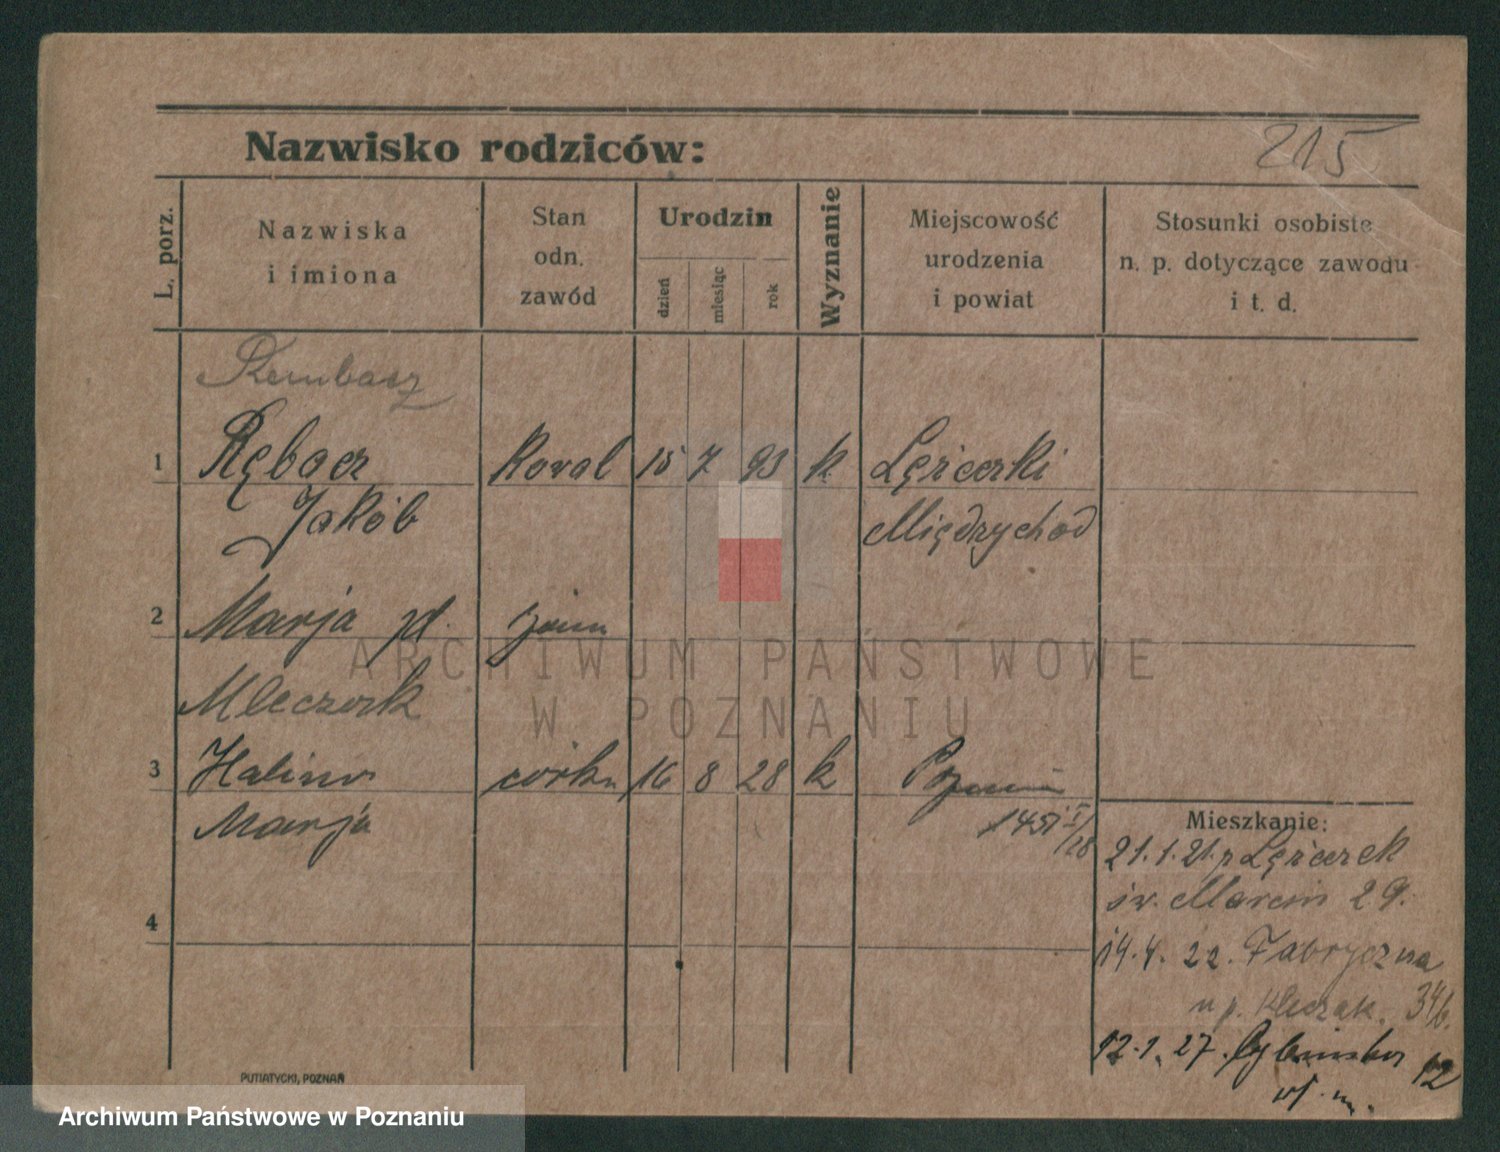 215
Nazwisko rodziców:
L. porz.
Nazwiska
i imiona
Stan
odn.
zawód
Urodzin
dzień
miesiąc
rok
Wyznanie
Miejscowość
urodzenia
i powiat
Stosunki osobiste
n. p. dotyczące zawodu
i t. d.
Rembacz
1 Rębacz Kowal 15 7 93 k Łężeczki
Jakób Międzychód
2 Marja zd. żona
Mleczak
3 Halina córka 16 8 28 k Poznań
Marja
4
Mieszkanie:
21.1.21. z Łężeczek
św. Marcin 29.
14.4.22. Fabryczna
u p. Kleczak. 34b.
12.1.27. 12
PUTIATYCKI, POZNAŃ
ARCHIWUM PAŃSTWOWE
W POZNANIU
Archiwum Państwowe w Poznaniu